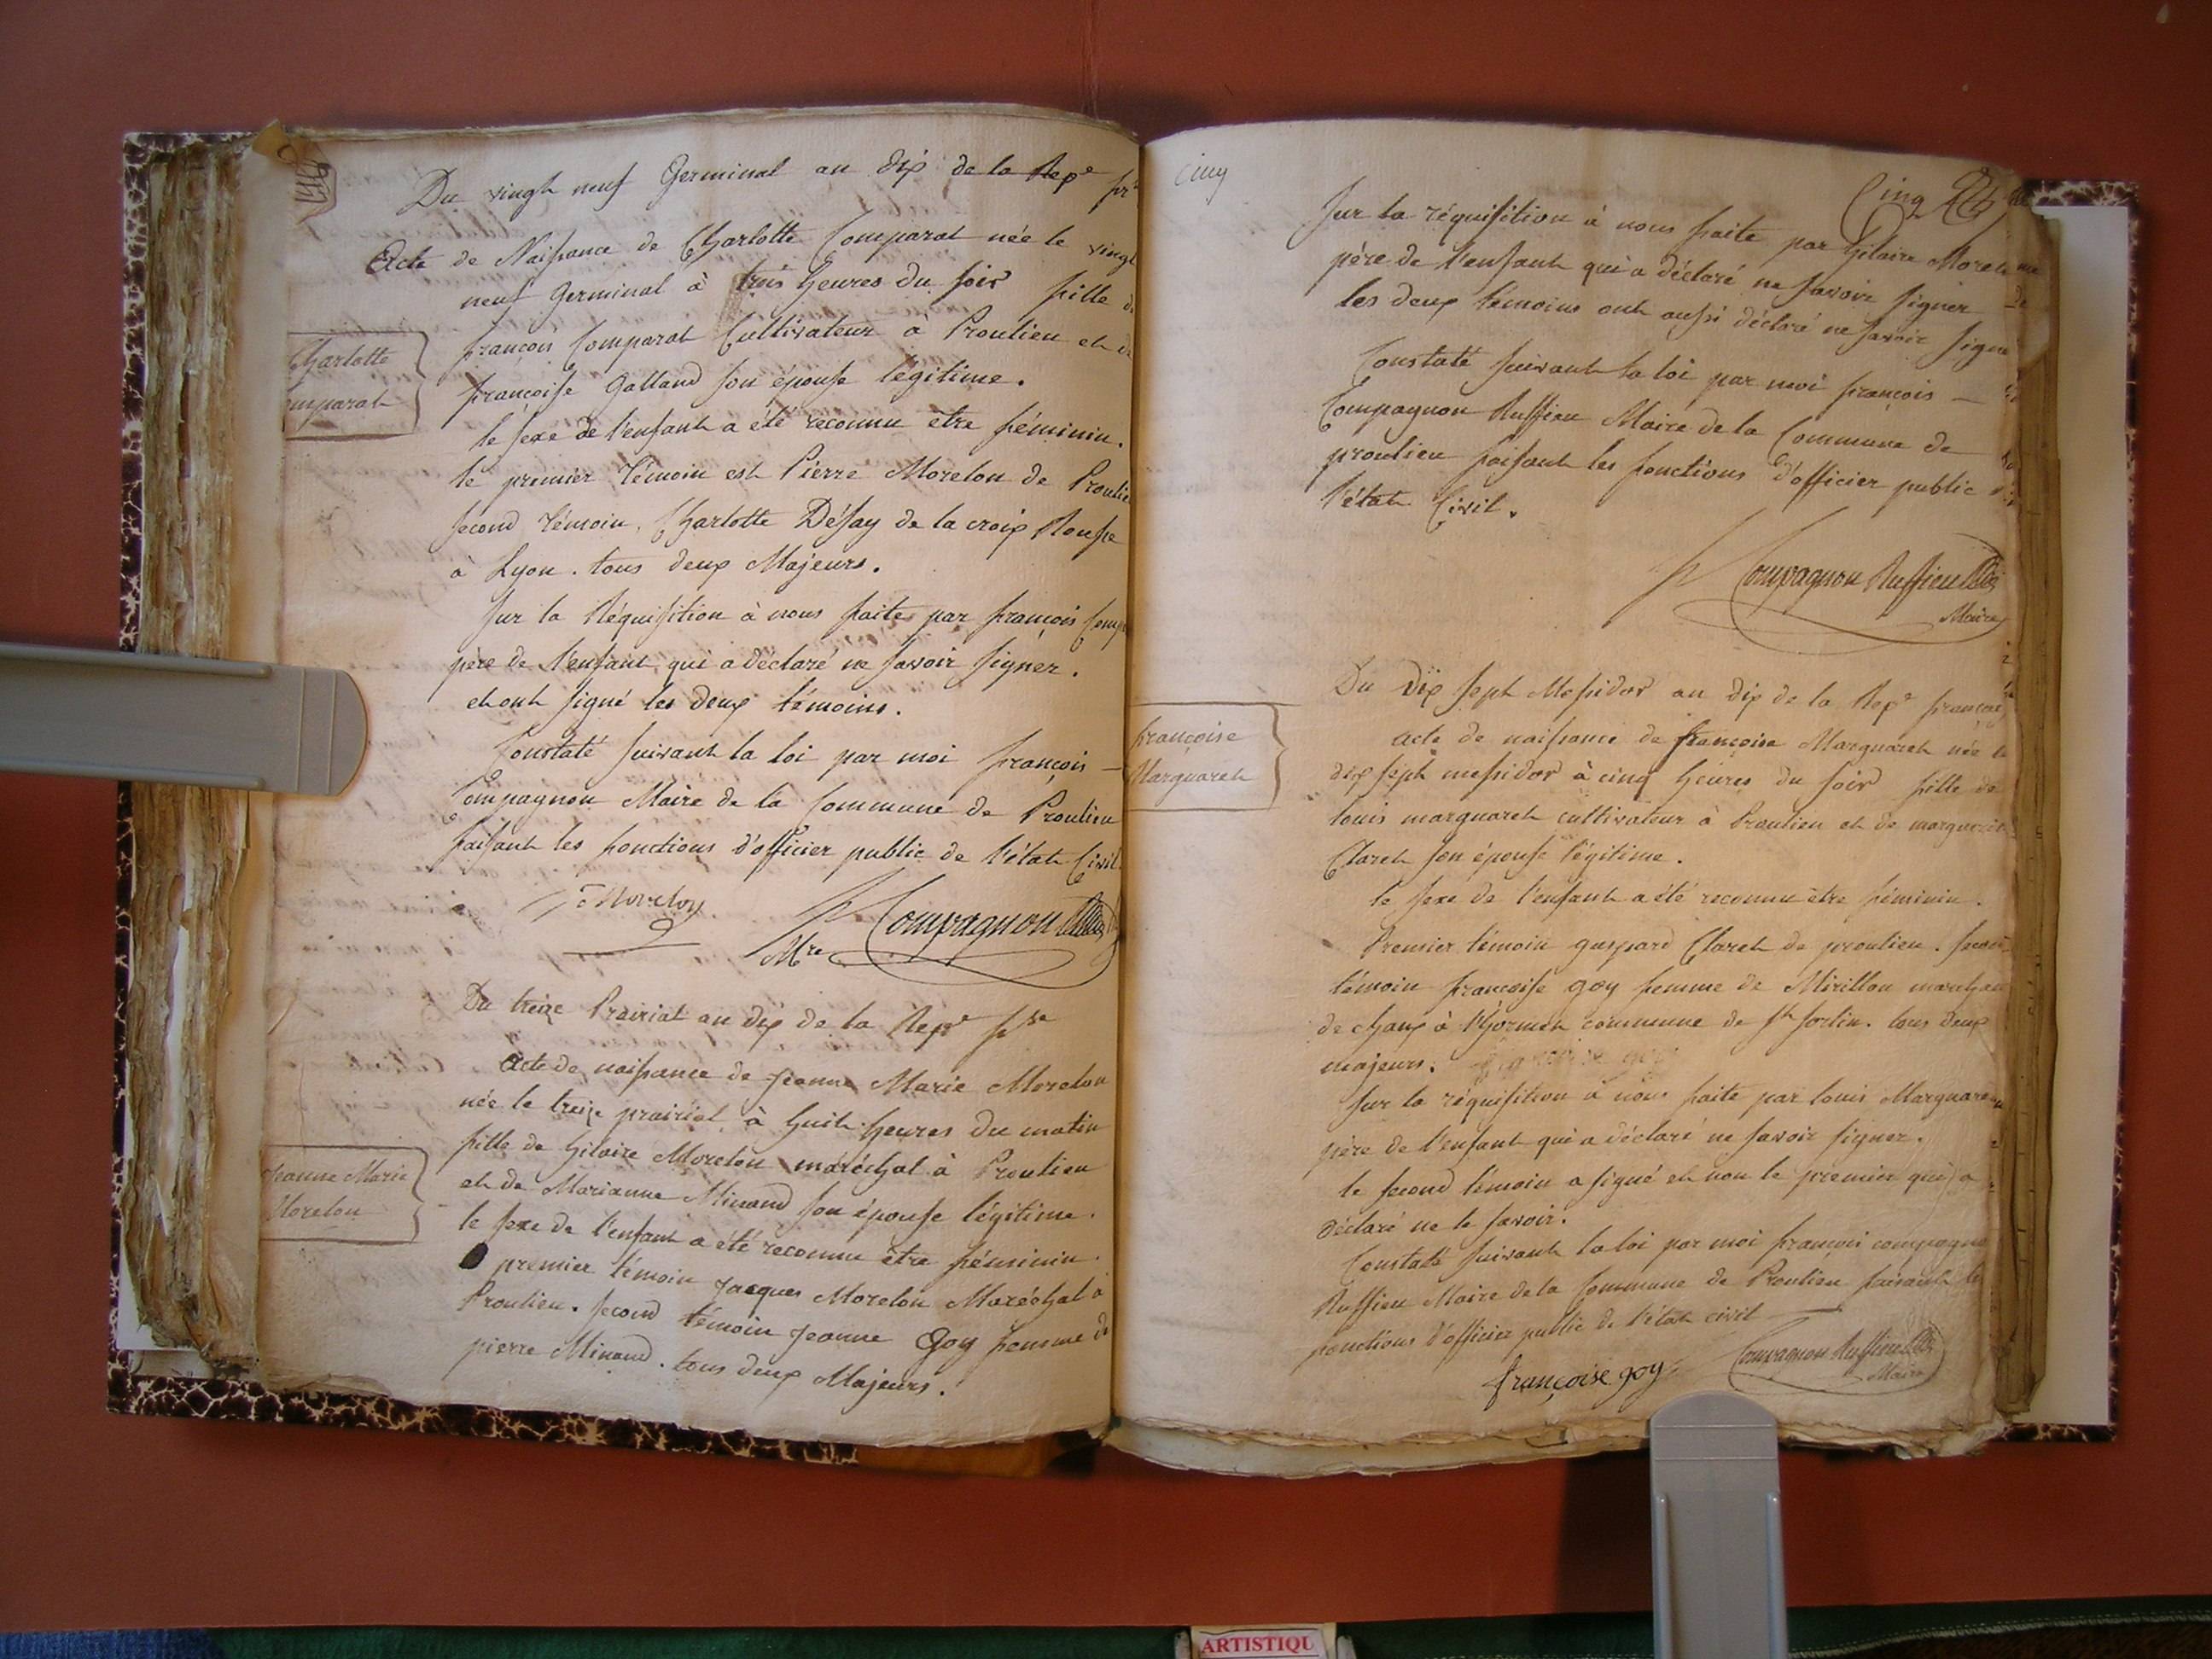 Du vingt neuf Germinal an dix de la Repe fr
Acte de Naissance de Charlotte Comparat née le vingt
neuf Germinal à trois heures du soir fille de
françois Comparat Cultivateur a Proulieu et de
françoise Galland son épouse légitime.
le sexe de l'enfant a été reconnu être féminin.
le premier témoin est Pierre Morelon de Proulieu
second témoin, Charlotte Désay de la croix Rousse
à Lyon. tous deux Majeurs.
Sur la Réquisition à nous faite par françois Comp
père de l'enfant, qui a déclaré ne savoir signer.
et ont signé les deux témoins.
Constaté suivant la loi par moi françois -
Compagnon Maire de la Commune de Proulieu
faisant les fonctions d'officier public de l'état Civil.
Morelon
Compagnon
Mre
Charlotte
omparat
Du treize Prairial an dix de la Repe fse
Acte de naissance de jeanne Marie Morelon
née le treize prairial à huit heures du matin
fille de hilaire Morelon maréchal à Proulieu
et de Marianne Minand son épouse légitime.
le sexe de l'enfant a été reconnu être féminin.
premier témoin Jacques Morelon Maréchal à
Proulieu. second témoin jeanne Goy femme de
pierre Minand. tous deux Majeurs.
jeanne Marie
Morelon
cinq
Cinq
Sur la réquisition à nous faite par hilaire Morelon
père de l'enfant qui a déclaré ne savoir signer
les deux témoins ont aussi déclaré ne savoir signer
Constaté suivant la loi par moi françois -
Compagnon Ruffieu Maire de la Commune de
proulieu faisant les fonctions d'officier public de
l'état Civil.
Compagnon Ruffieu
Maire
Du dix sept Messidor an dix de la Repe françoise
acte de naissance de françoise Marguaret née le
dix sept messidor à cinq heures du soir fille de
louis marguaret cultivateur à Proulieu et de marguerite
Claret son épouse légitime.
le sexe de l'enfant a été reconnu être féminin.
Premier témoin gaspard Claret de proulieu. second
témoin françoise goy femme de Mirillon marchand
de chaux à l'hormet commune de st sorlin. tous deux
majeurs.
Sur la réquisition à nous faite par louis Marguaret
père de l'enfant qui a déclaré ne savoir signer.
le second témoin a signé et non le premier qui a
déclaré ne le savoir.
Constaté suivant la loi par moi françois compagnon
Ruffieu Maire de la Commune de Proulieu faisant les
fonctions d'officier public de l'état civil
françoise goy
Compagnon Ruffieu
Maire
françoise
Marguaret
ARTISTIQU